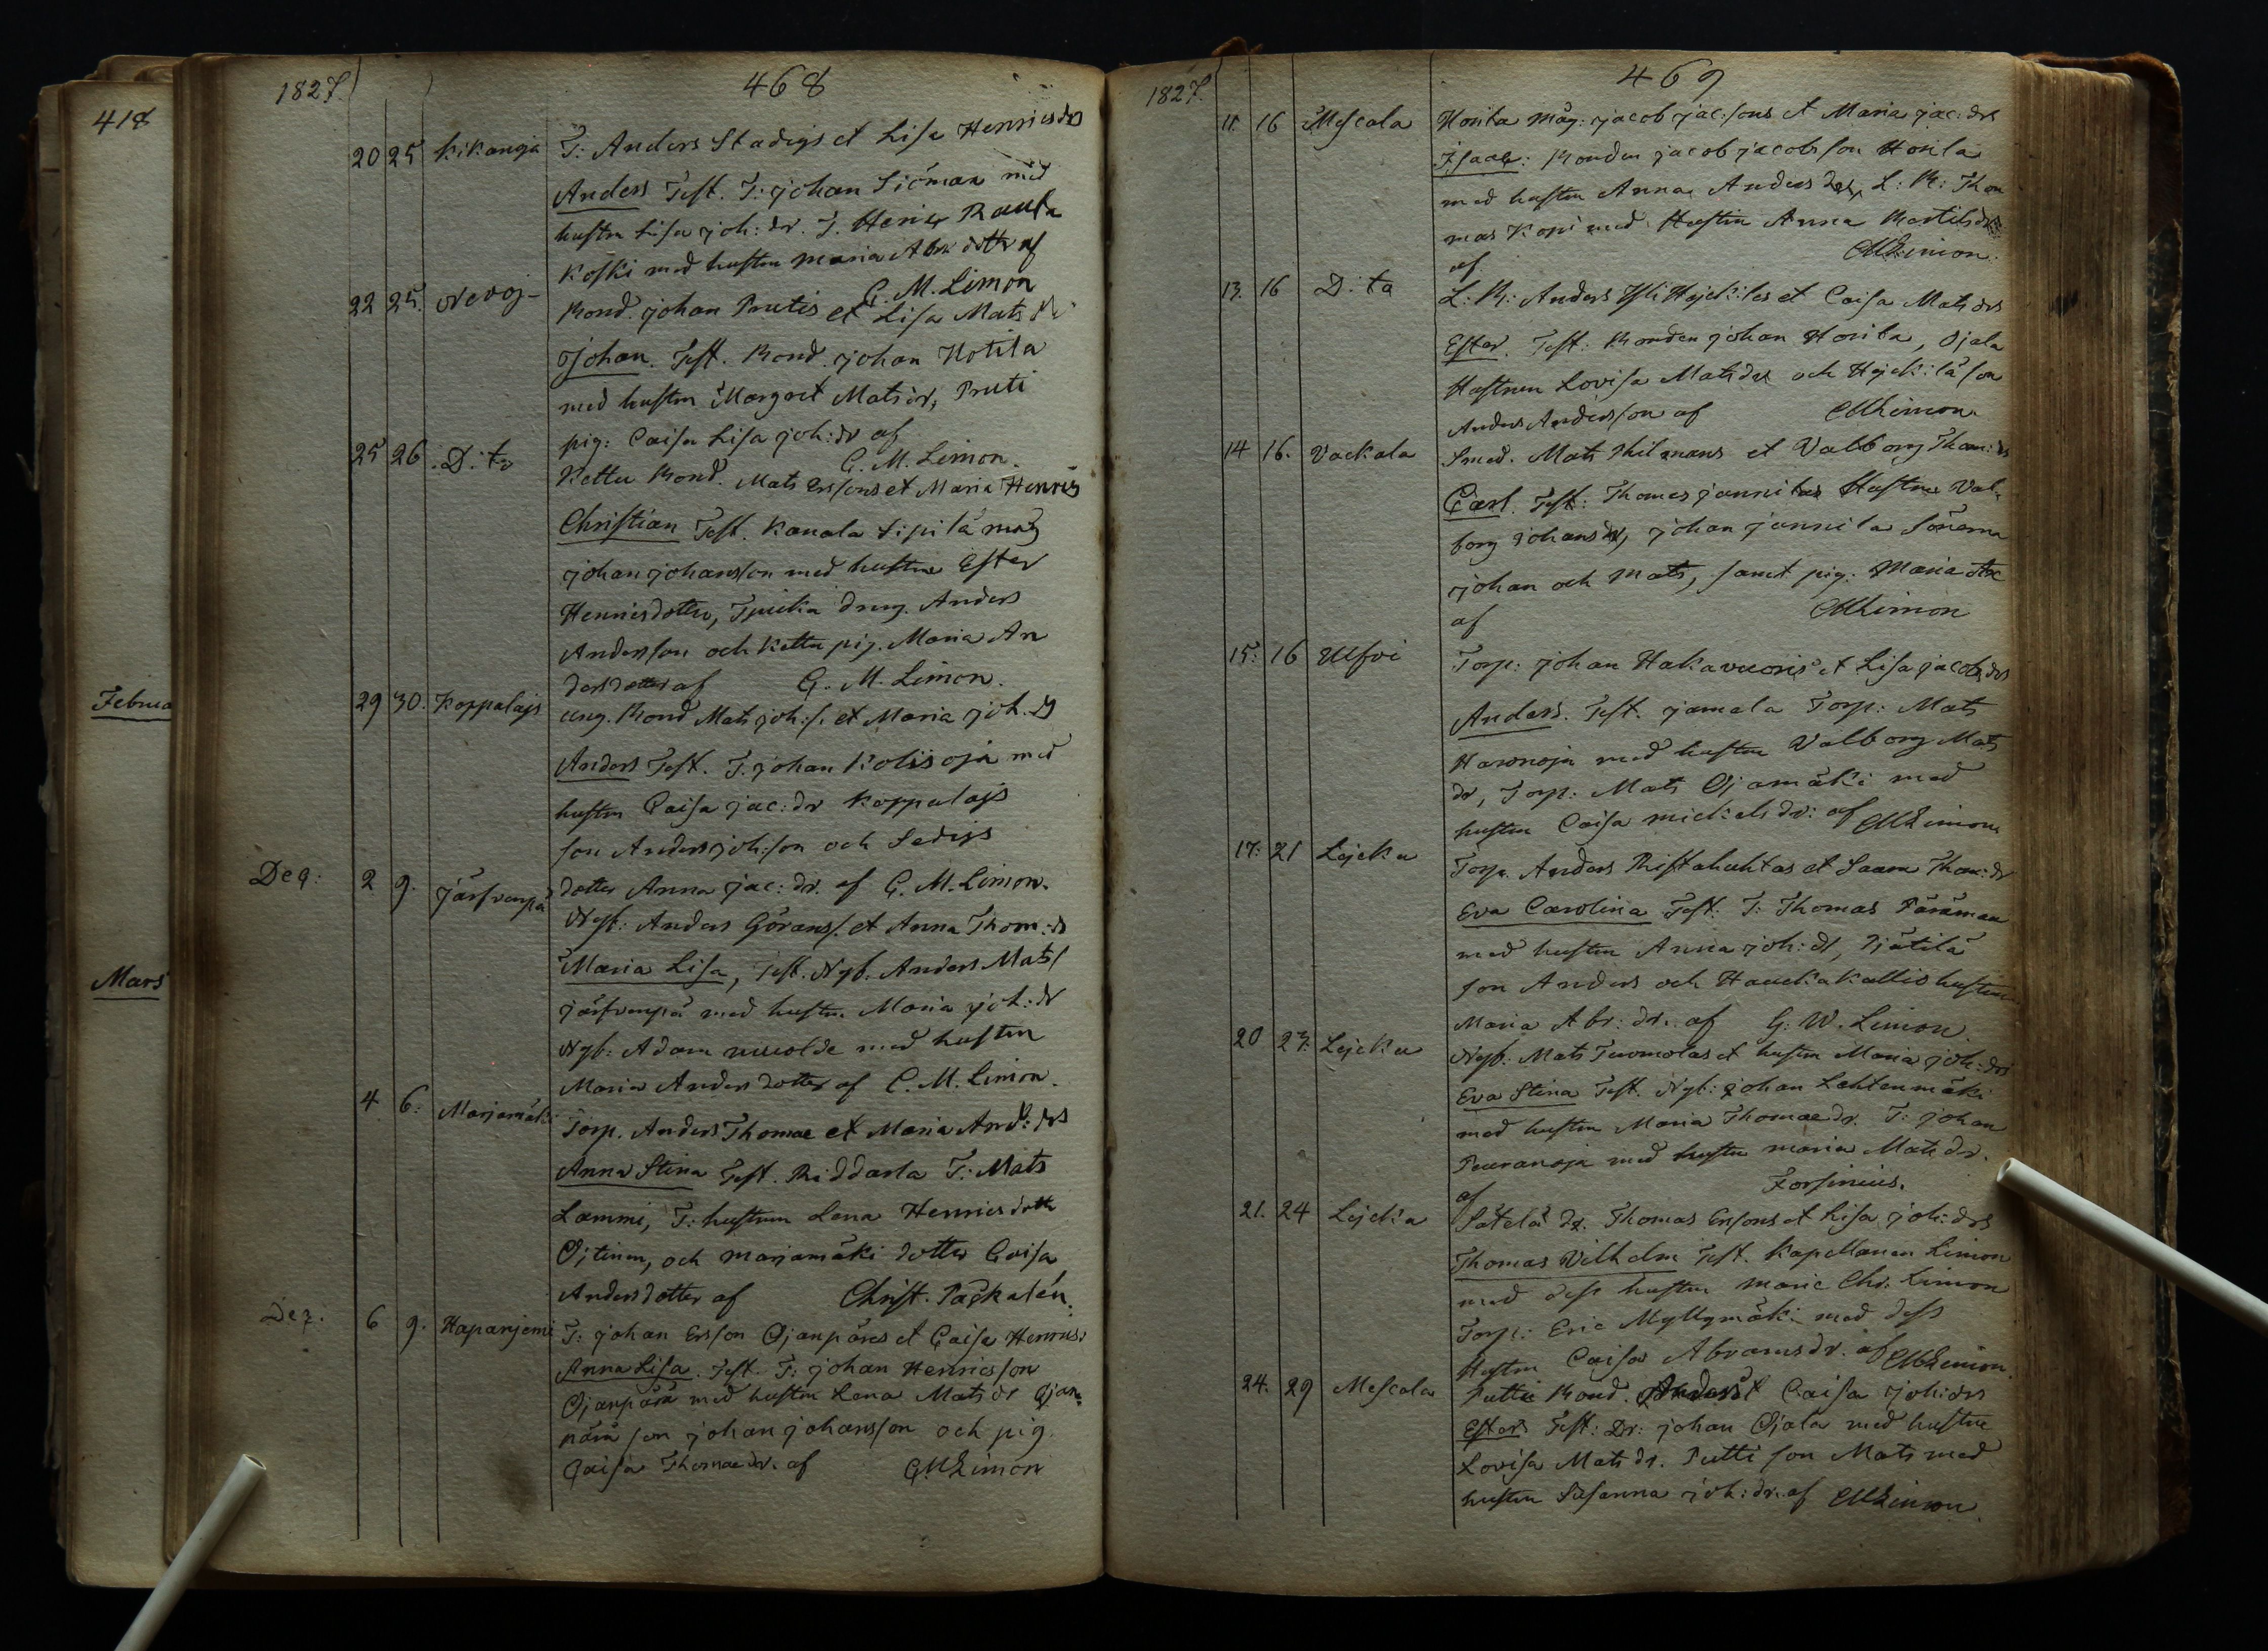 418
Februa
Mars
1827.
468
20 25 Kikanoja T: Anders Stadigs et Lisa Henricsdrs
Anders Test. T: johan Siöman med
hustru Lisa joh: dr. T. Henric Rauta
Koski med hustru Maria Abr dotter af
G. M. Limon
22 25. Nevoj- Bond. johan Prutis et Lisa Mats dr
Johan. Test. Bond. johan Hotila
med hustru Margret Matsdr, Pruti
pig: Caisa Lisa joh: dr af
G. M. Limon.
25 26 D:to Kettu Bond. Mats Ersons et Maria Henrics
Christian Test. Kanala Sipilä måg
johan johansson med hustru Ester
Henricsdotter, dreng. Anders
Andersson och Kettu pig. Maria An
dersdotter af G. M. Limon.
29 30. Koppalajs ung. Bond Mats joh:s. et Maria joh. dr
Anders Test. T. johan Kolisoja med
hustru Caisa jac: dr Koppalajs
son Anders joh:son och Sedigs
dotter Anna jac: dr. af G. M. Limon.
Dec: 2 9. Järfvenpä Nyb: Anders Görans. et Anna Thom: dr
Maria Lisa, Test. Nyb. Anders Mats
Järfvenpä med hustru Maria joh: dr
Nyb: Adam med hustru
Maria Anders dotter af G. M. Limon.
4 6: Marjamäki Torp. Anders Thomae et Maria And: drs
Anna Stina Test. Riddarla T: Mats
Lammi, T: hustrun Lena Henricsdotter
Ojtinen, och Marjamäki dotter Caisa
Andersdotter af Christ. Paskalén.
Dez. 6 9. Hapanjemi T: johan Ersson Ojanpäres et Caisa Henrics:
Anna Lisa. Test. T: johan Henricsson
Ojanpärä med hustru Lena Mats dr Ojan-
pärä son johan johansson och pig.
Caisa Thomae dr. af GMLimon
1827.
469
11. 16 Mescala Horila måg: jacob jac:sons et Maria jac: drs
Isaac: Bonden jacob jacobsson Horila
med hustru Anna Anders drs, L: B: Thom
mas Kopi med Hustru Anna Bertilsdr
af GMLimon.
13. 16 D:to L: B: Anders Yli Hejkiles et Caisa Mats drs
Ester. Test. Bonden johan Horila, Ojala
Hustrun Lovisa Matsdr och Hejkilä son
Anders Andersson af GMLimon.
14 16. Vackala Smed. Mats Thilmans et Valborg Thom: dr
Carl. Test: Thomas jannilas Hustru Val-
borg Johansdr, johan jannila Sönerna
johan och Mats, samt pig: Maria
af GMLimon
15: 16 Ulfvi Torp: johan Hakavuoris et Lisa jacobs drs
Anders. Test. jamala Torp: Mats
Haronoja med hustru Valborg Mats
dr, Torp: Mats Ojamäki med
hustru Caisa mickelsdr: af GMLimon
17: 21 Lejcku Torp. Anders Ristahuhtas et Saara Thom: dr
Eva Carolina Test: T: Thomas Päräman
med hustru Anna joh: dr, Pjätilä
son Anders och Hauckakallio hustrun
Maria Abr: dr. af G: W. Limon.
20 23: Lejcku Nyb: Mats Tuomolas et hustru Maria joh: drs
Eva Stina Test. Nyb: johan Lehtenmäki
med hustru Maria Thomae dr. T: johan
Peuranoja med hustru maria Mats dr.
af Forsinius.
21. 24 Lejcku Sätelä dr. Thomas Ersons et Lisa joh: drs
Thomas Vilhelm Test. Kapellanen Limon
med dess hustru Maria Chr. Limon
Torp: Eric Myllymäki med dess
Hustru Caisa Abramsdr. af GMLimon.
24. 29 Mescala Putti Bond. Anders et Caisa joh: drs
Ester Test: Dr: johan Ojala med hustru
Lovisa Mats dr. Putti son Mats med
hustru Susanna joh: dr. af GMLimon.